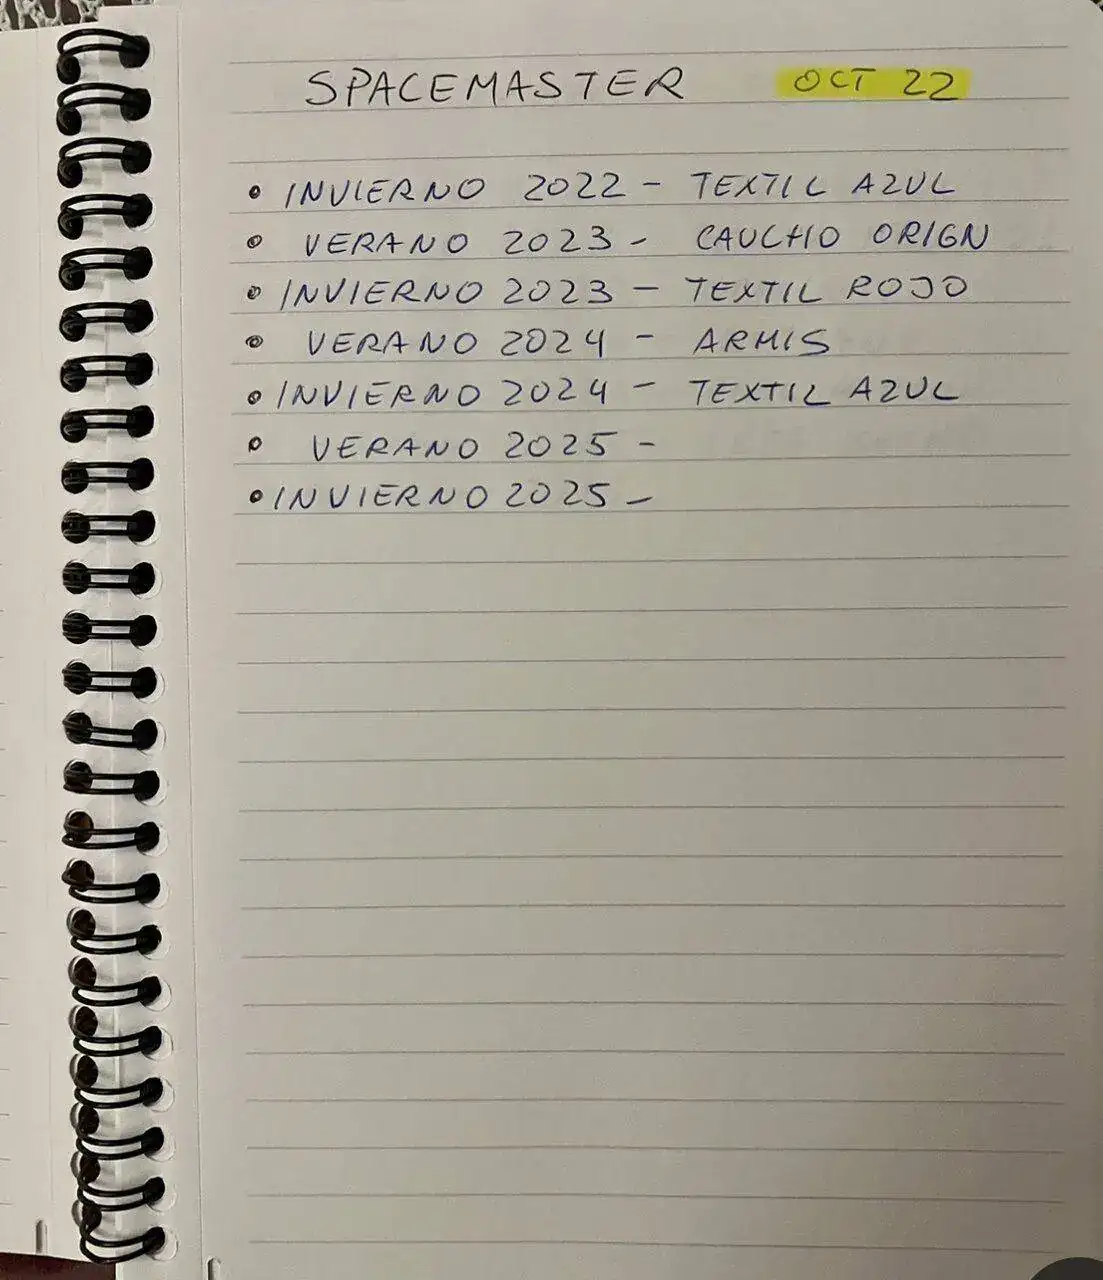 SPACEMASTER OCT 22
• INVIERNO 2022 - TEXTIL AZUL
• VERANO 2023 - CAUCHO ORIGN
• INVIERNO 2023 - TEXTIL ROJO
• VERANO 2024 - ARMIS
• INVIERNO 2024 - TEXTIL AZUL
• VERANO 2025 -
• INVIERNO 2025 -